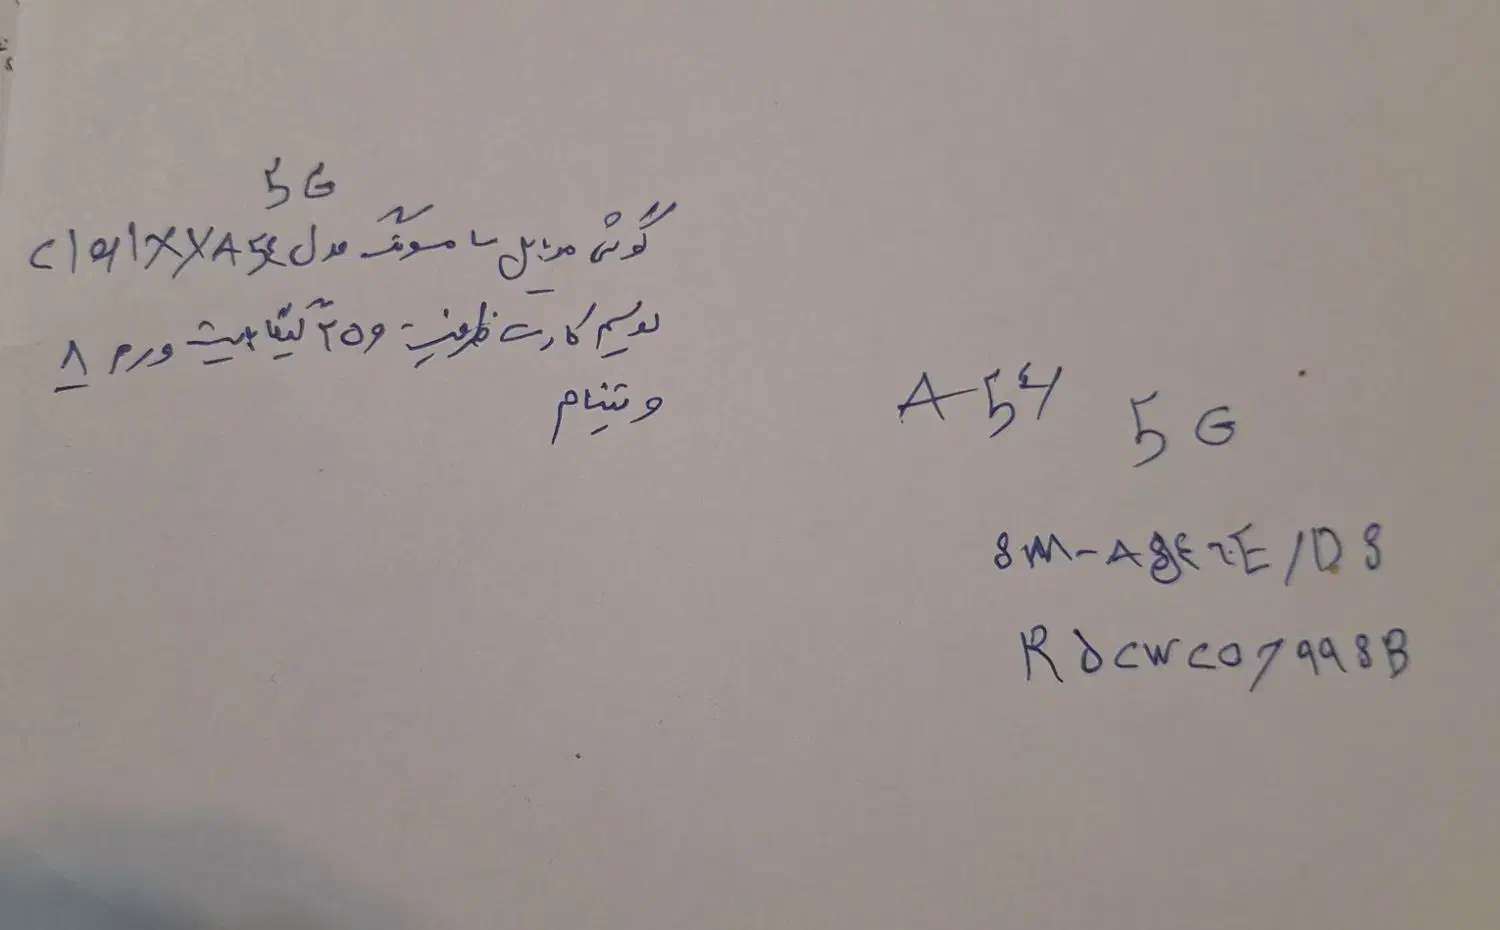 5G
گوشی موبایل سامسونگ مدل GalaXyA54
دو سیم کارت ظرفیت ۲۵۶ گیگابایت ورم ۸
ویتنام
A54 5G
SM-A546E/DS
RdCWC07998B